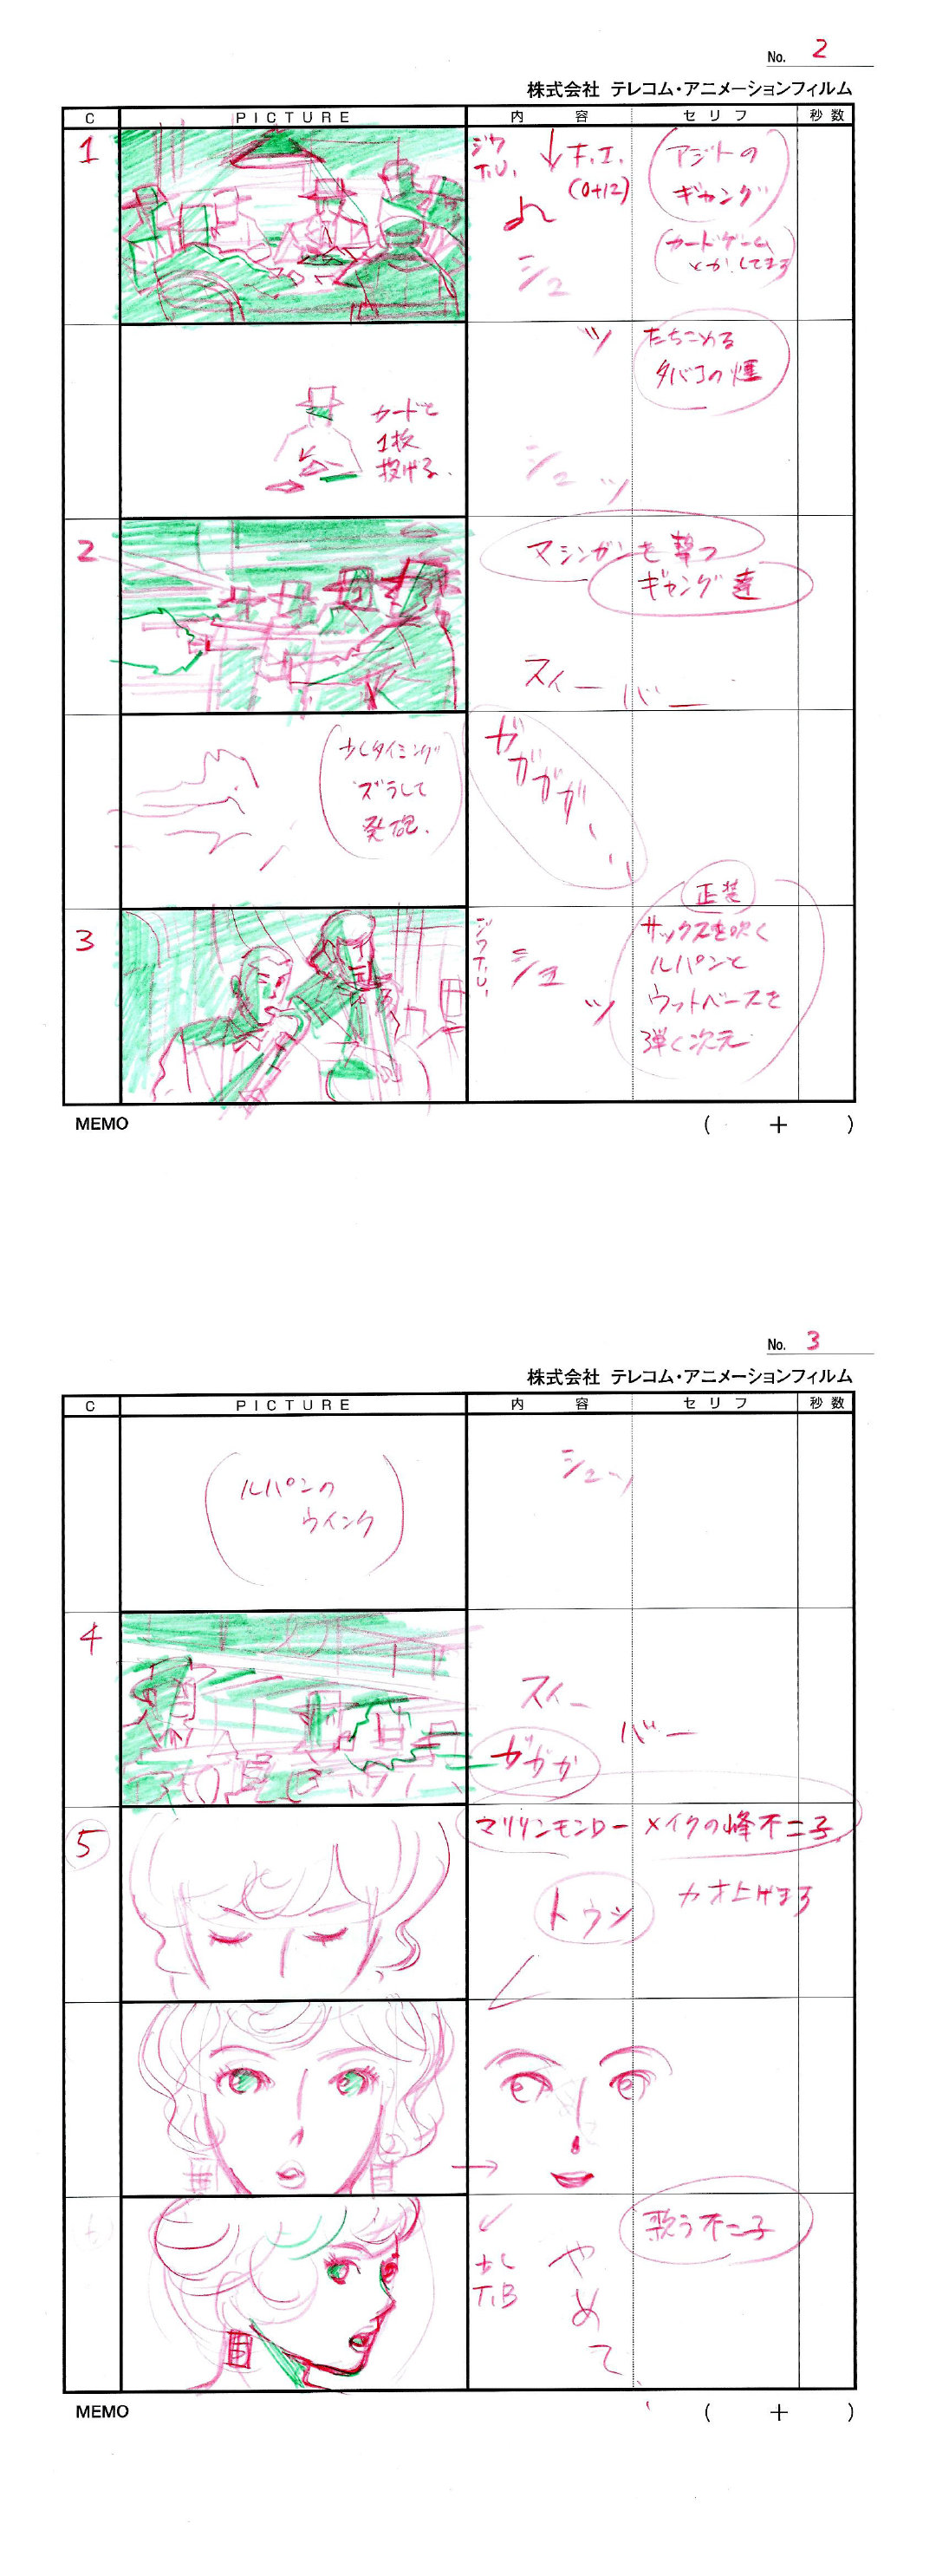 No. 2
株式会社 テレコム・アニメーションフィルム
C PICTURE 内 容 セリフ 秒数
1
ジワ
T.U.
F.I.
(0+12)
アジトの
ギャング
カードゲーム
とかしてます
シュ
ッ
たちこめる
タバコの煙
カードを
1枚
投げる.
シュッ
2
マシンガンを撃つ
ギャング達
スィー
バー
少しタイミング
ズラして
発砲.
ガガガガ
3
ジワT.U.
シュ
ッ
正装
サックスを吹く
ルパンと
ウットベースを
弾く次元
MEMO ( + )
No. 3
株式会社 テレコム・アニメーションフィルム
C PICTURE 内 容 セリフ 秒数
ルパンの
ウインク
シューッ
4
スィー
バー
ガガガ
5
マリリンモンローメイクの峰不二子
トゥッ
カオ上げまる
少し
T.B
やめて
歌う不二子
MEMO ( + )